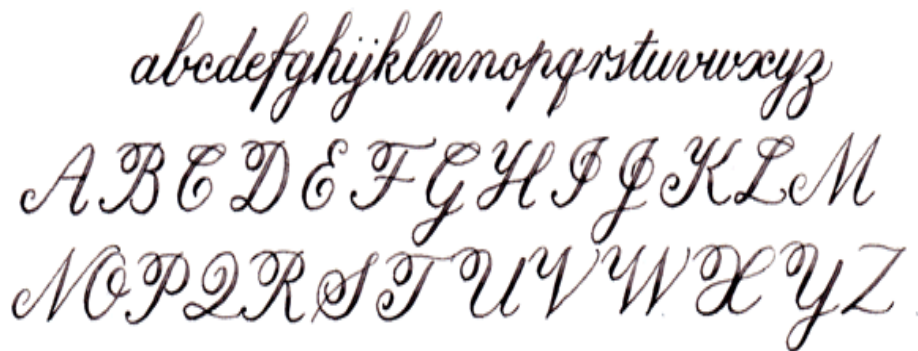 abcdefghijklmnopqrstuvwxyz
ABCDEFGHIJKLM
NOPQRSTUVWXYZ